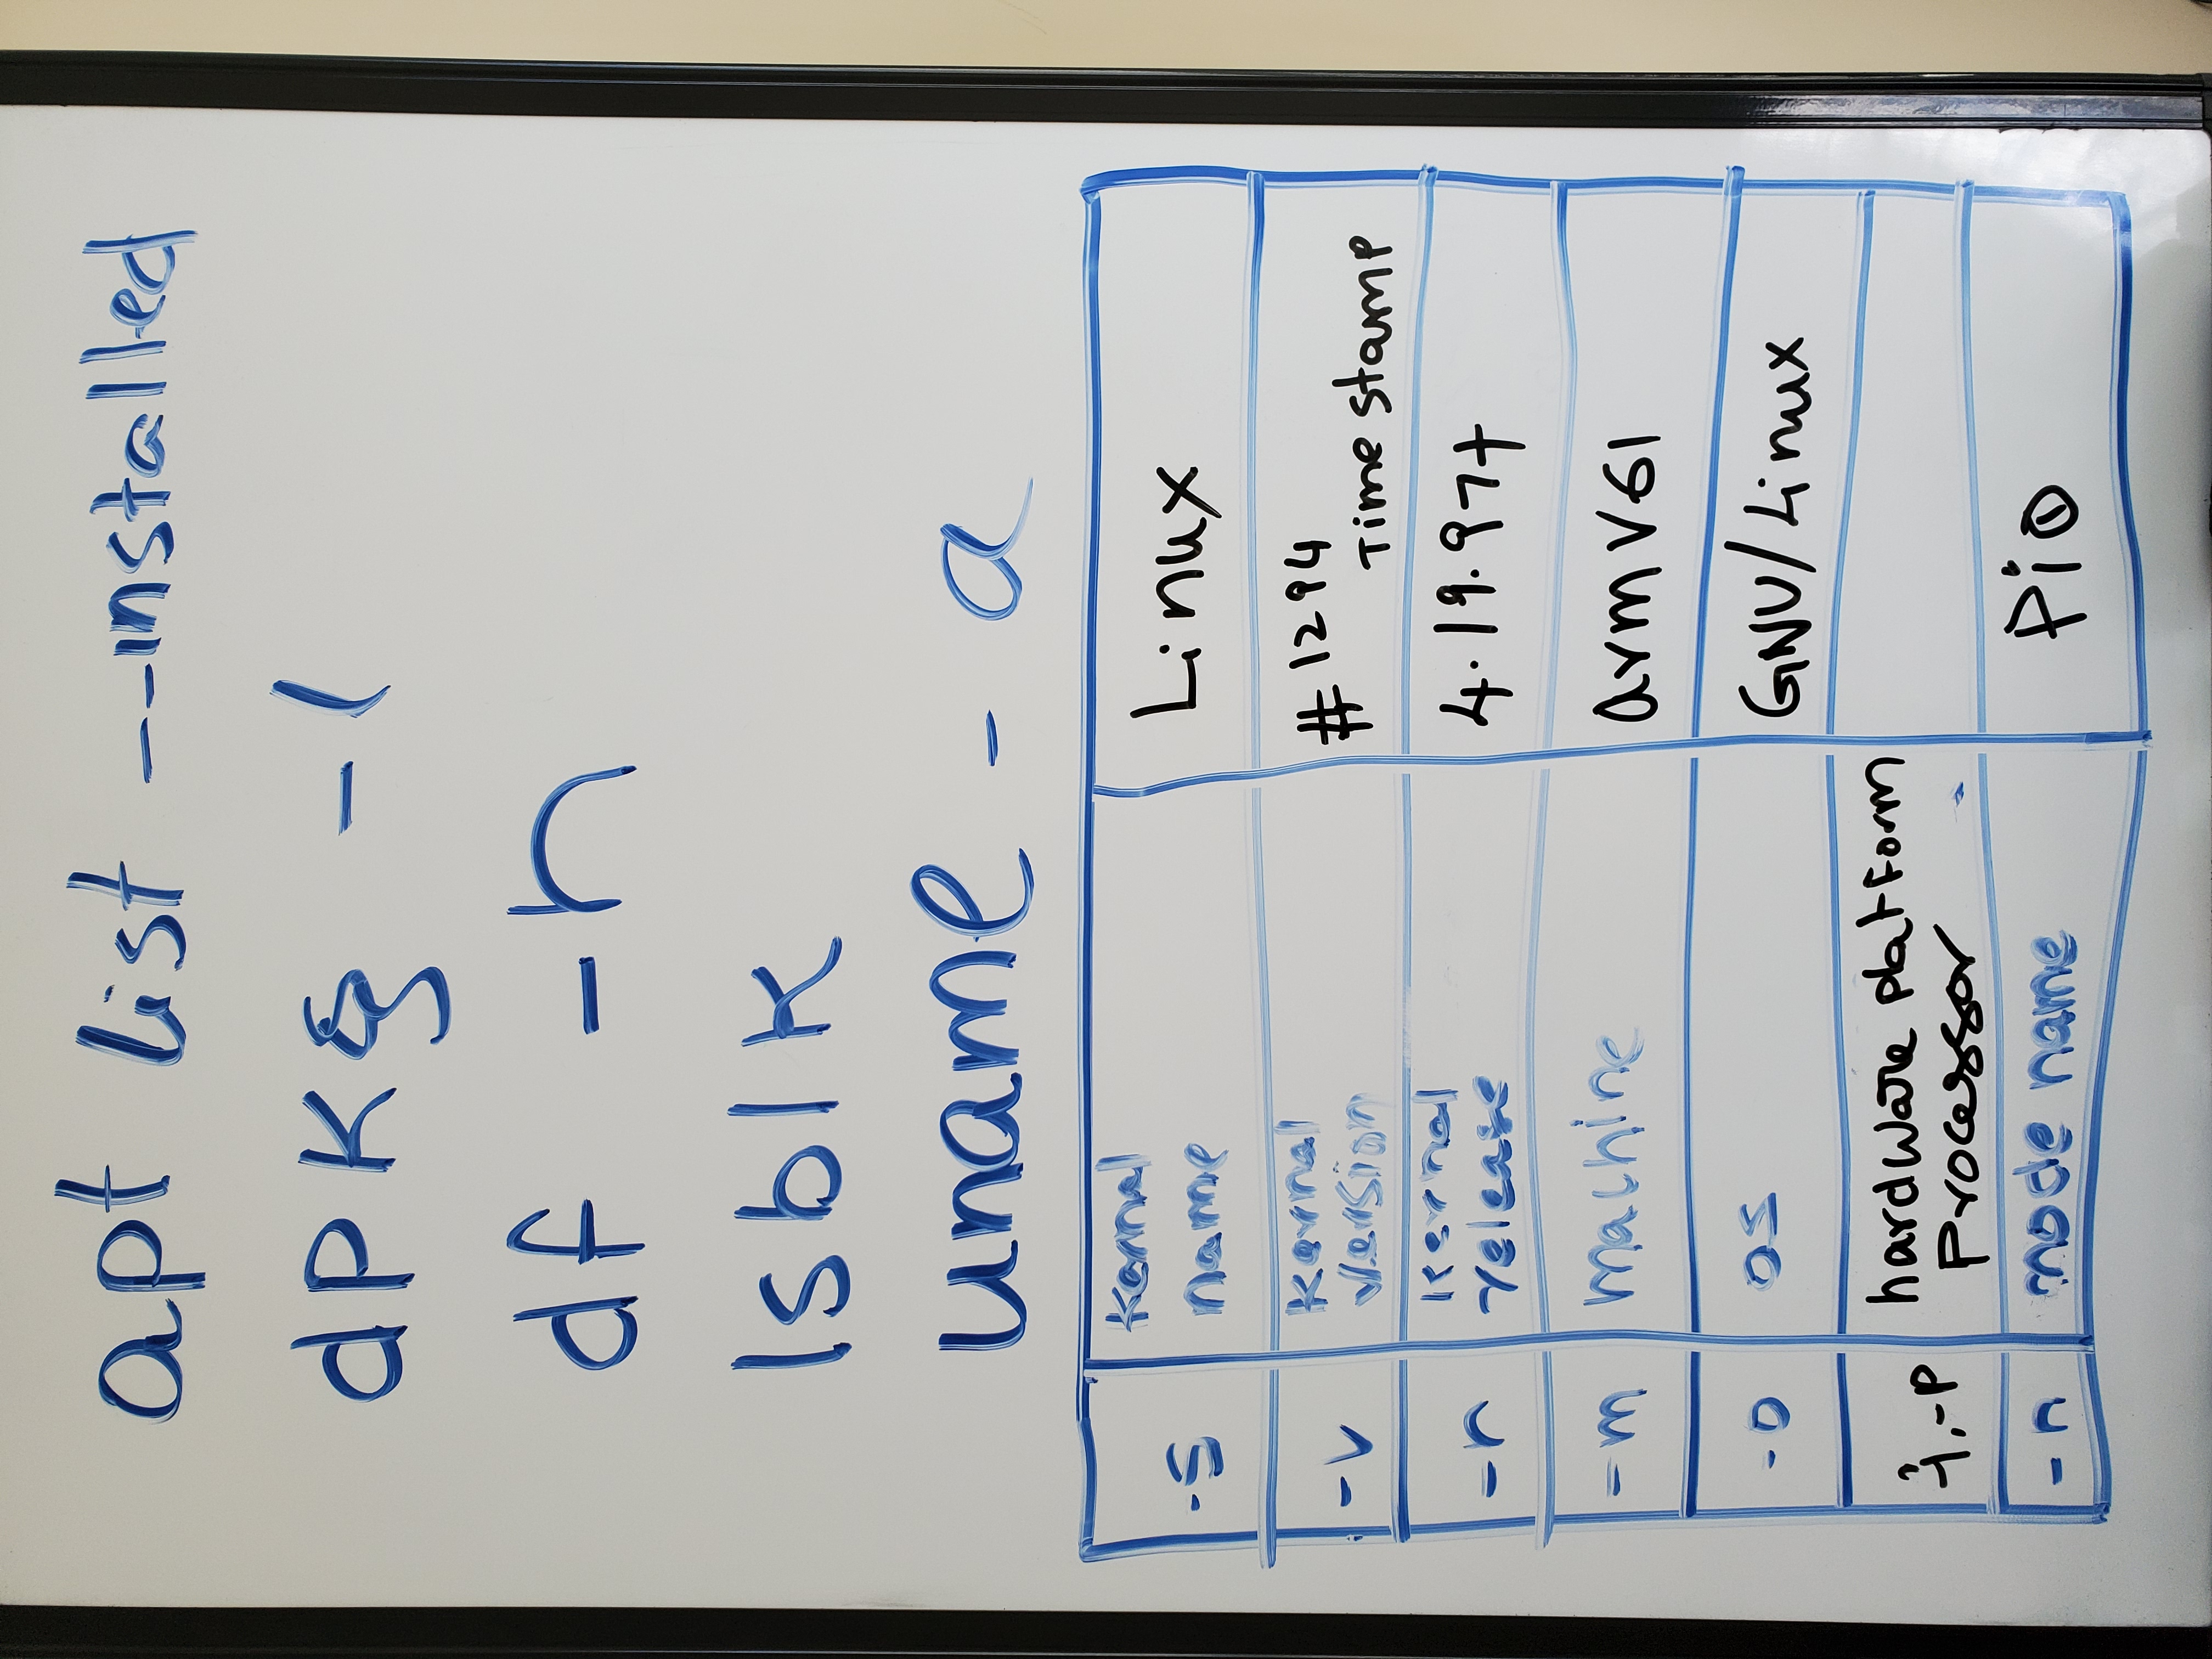 apt list --installed
dpkg -l
df -h
lsblk
uname - a
-s kernal name Linux
-v kernal version #1294 Time stamp
-r kernal release 4.19.97+
-m machine armv6l
-o os GNU/Linux
-i,-p hardware platform processor
-n node name Pi0